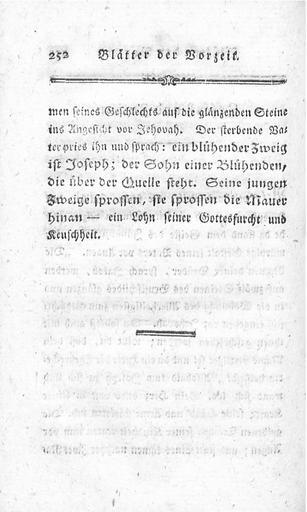 252 Blätter der Vorzeit.
men seines Geschlechts auf die glänzenden Steine
ins Angesicht vor Jehovah. Der sterbende Va-
ter pries ihn und sprach: ein blühender Zweig
ist Joseph; der Sohn einer Blühenden,
die über der Quelle steht. Seine jungen
Zweige sprossen, sie sprossen die Mauer
hinan — ein Lohn seiner Gottesfurcht und
Keuschheit.